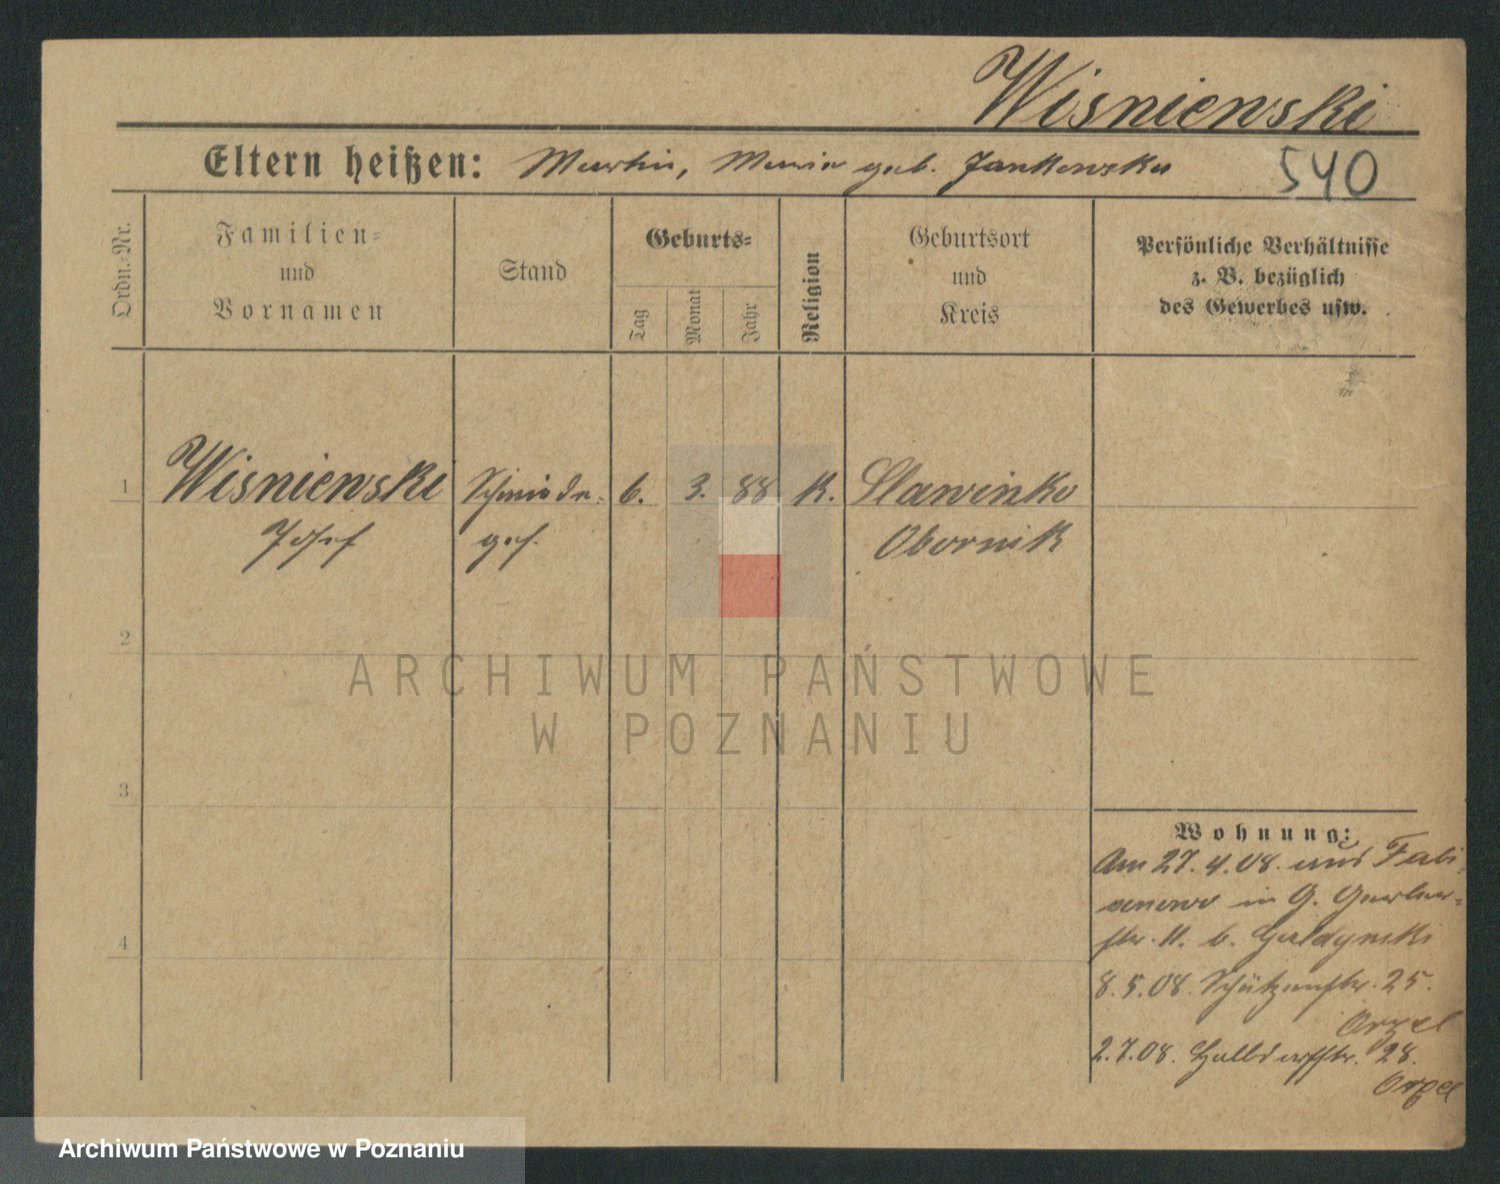 Wisniewski
Eltern heißen: Martin, Maria geb. Jankowska
540
Ordn.-Nr.
Familien-
und
Vornamen
Stand
Geburts-
Tag
Monat
Jahr
Religion
Geburtsort
und
Kreis
Persönliche Verhältnisse
z. B. bezüglich
des Gewerbes usw.
1 Wisniewski Schmiede- 6. 3. 88 K. Slawinko
Josef ges. Obornik
2
3
4
ARCHIWUM PAŃSTWOWE
W POZNANIU
Wohnung:
Am 27.4.08. aus Fabi-
anowo in G. Gerber-
str. 11. b.
8.5.08. Schützenstr. 25.
Orzel
2.7.08. Halbdorfstr. 28.
Orzel
Archiwum Państwowe w Poznaniu